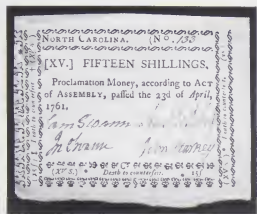 NORTH CAROLINA. (No. 193
[XV.] FIFTEEN SHILLINGS.
Proclamation Money, according to ACT
of ASSEMBLY, paſſed the 23d of April,
1761.
Sam Swann
John Starkey
(XV S.) Death to counterfeit. 15ſ